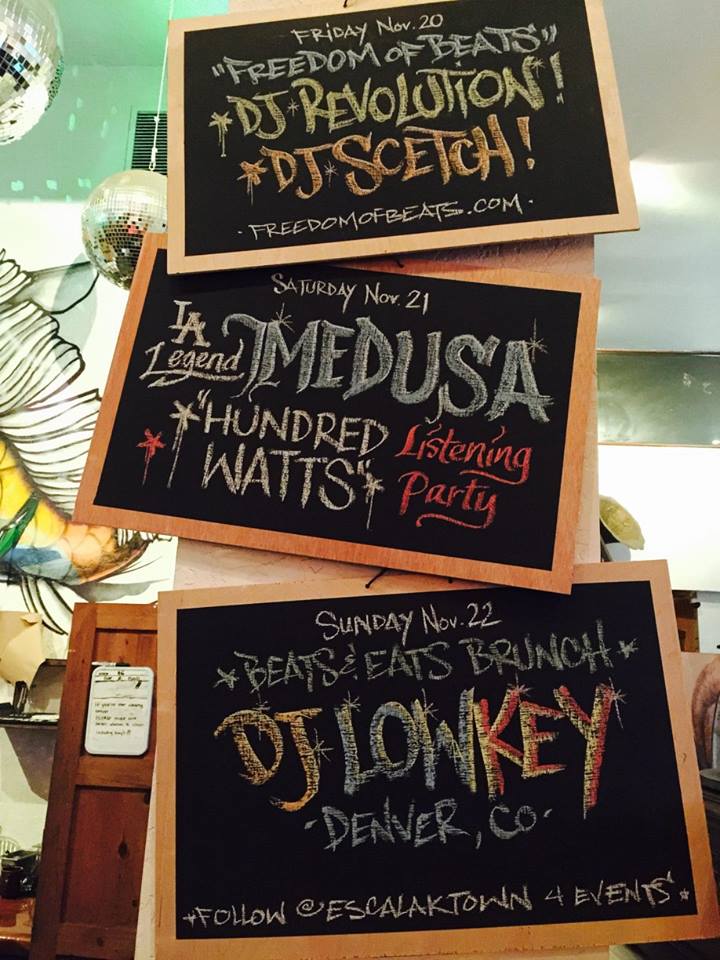 FRIDAY NOV. 20
"FREEDOM OF BEATS"
DJ REVOLUTION!
DJ SCETCH!
· FREEDOMOFBEATS.COM ·
SATURDAY NOV. 21
LA Legend MEDUSA
"HUNDRED WATTS"
Listening Party
SUNDAY NOV. 22
BEATS & EATS BRUNCH
DJ LOWKEY
· DENVER, CO ·
FOLLOW @ESCALAKTOWN 4 EVENTS